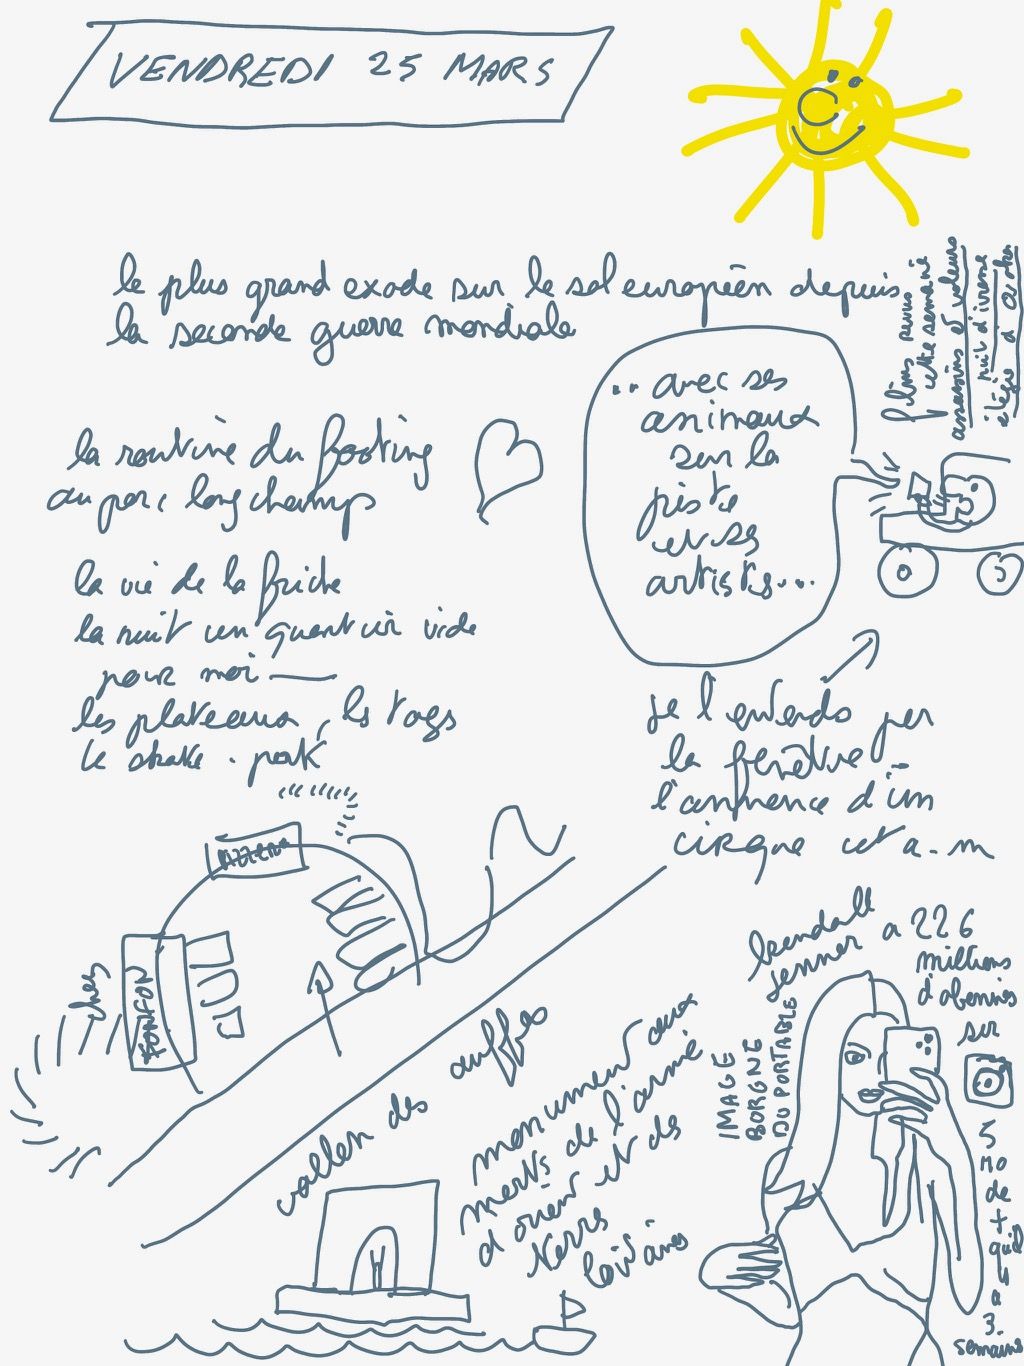 VENDREDI 25 MARS
le plus grand exode sur le sol européen depuis
la seconde guerre mondiale
films revus
cette semaine
assassins et voleurs
nuit d'ivresse
élégie d'
.. avec ses
animaux
sur la
piste
et ses
artistes...
la routine du footing
au parc longchamps
la vie de la friche
la nuit un quartier vide
pour moi
les plateaux, les tags
le skate. park
je l'entends par
la fenêtre
l'annonce d'un
cirque cet a-m
chez
FONFON
vallon des auffes
monument aux
morts de l'armée
d'orient et des
terres
lointaines
kendall
jenner a 226
millions
d'abonnés
sur
IMAGE
BORGNE
DU PORTABLE
5
MO
de
+
qu'il
y
a
3
semaines